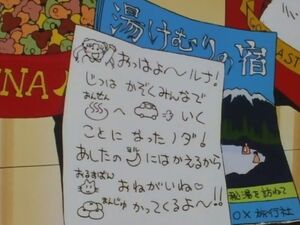 湯けむりの宿
NA
AST
おっはよ〜ルナ!
じつは かぞくみんなで
おんせん
♨へ いく
ことに なったノダ!
あしたの にはかえるから
おるすばん
おねがいね♡
まんじゅ かってくるよ〜!!
秘湯を訪ねて
○×旅行社